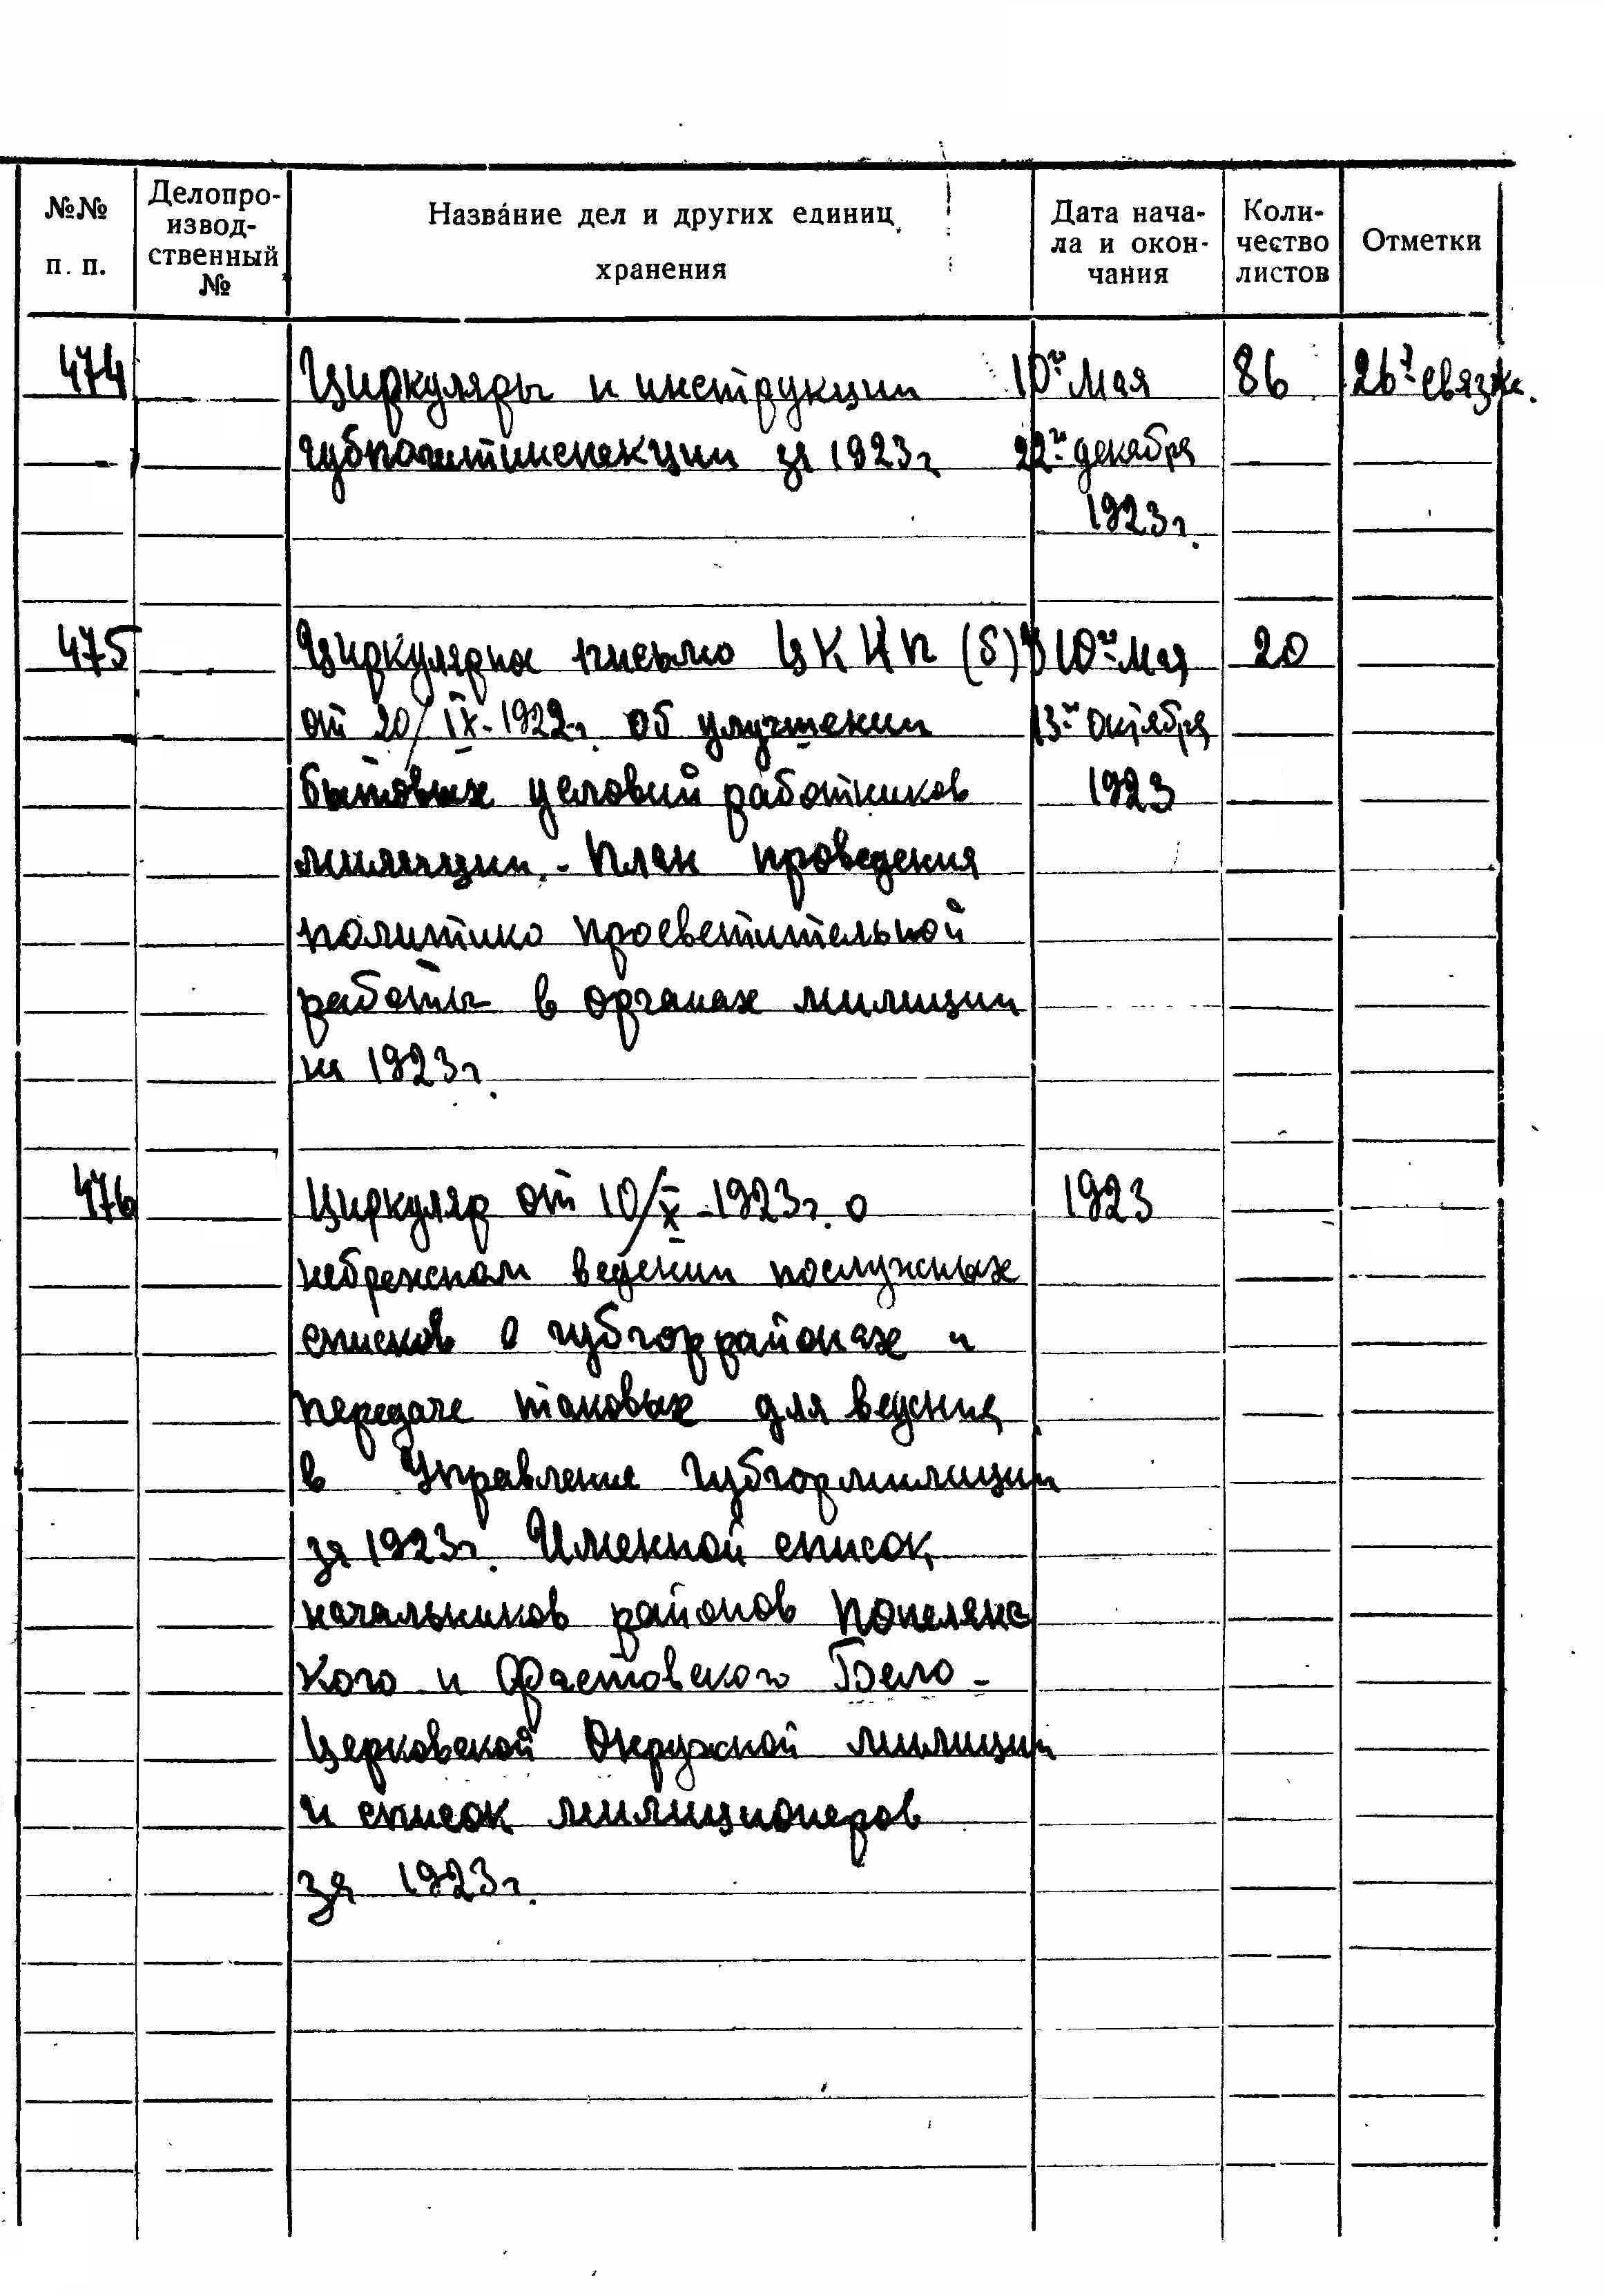 №№ п. п.
Делопро-
извод-
ственный
№
Название дел и других единиц
хранения
Дата нача-
ла и окон-
чания
Коли-
чество
листов
Отметки
474 Циркуляры и инструкции 10го мая 86 26я связка.
Губполитинспекции за 1923г 22го декабря
1923г.
475 Циркулярное письмо ЦК КП(б)У 10го мая 20
от 20/IX-1922г. об улучшении 13го октября
бытовых условий работников 1923
милиции. - План проведения
политико просветительной
работы в органах милиции
на 1923г.
476 Циркуляр от 10/X-1923г. о 1923
небрежном ведении послужных
списков о губгоррайонах и
передаче таковых для ведения
в Управление Губгормилиции
за 1923г. Именной список
начальников районов Попелянс
кого и Фастовского Бело-
Церковской Окружной милиции
и список милиционеров
за 1923г.